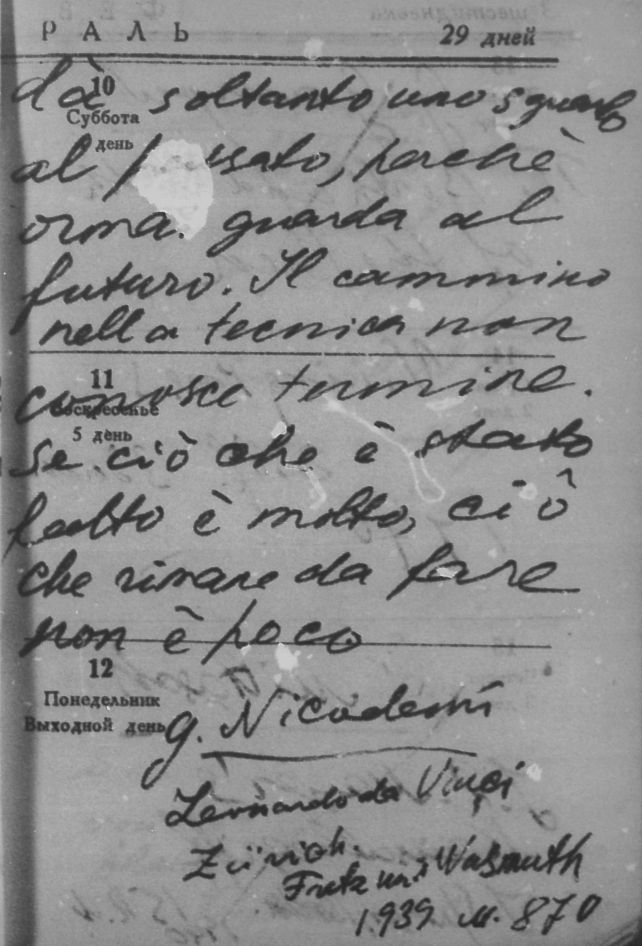 РАЛЬ
29 дней
dà soltanto uno sguardo
10
Суббота
день
al passato, perchè
ormai guarda al
futuro. Il cammino
nella tecnica non
11
conosce termine.
Воскресенье
5 день
se ciò che è stato
fatto è molto, ciô
che rimane da fare
non è poco
12
Понедельник
Выходной день
g. Nicodemi
Leonardo da Vinci
Zürich.
Fretz und Wasmuth
1939 м. 870